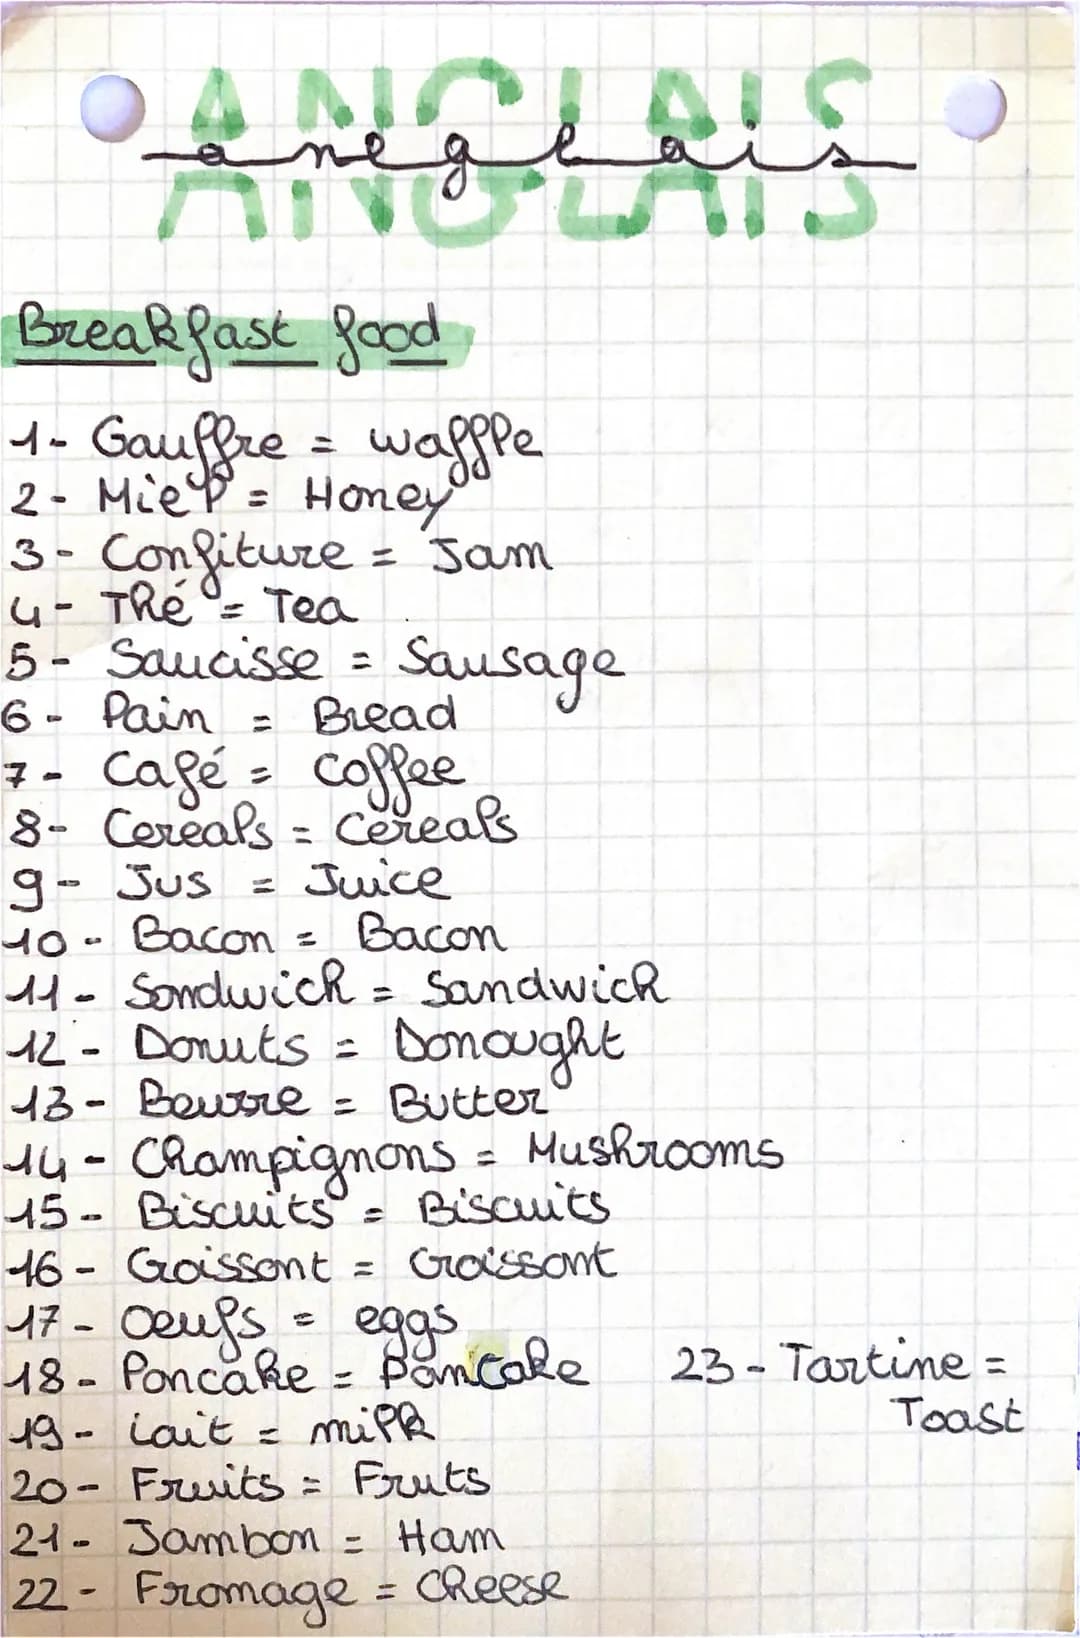 ANGLAIS
anglais
Breakfast food
1- Gauffre = waffle
2- Miel = Honey
3- Confiture = Jam
4- Thé = Tea
5- Saucisse = Sausage
6- Pain = Bread
7- Café = Coffee
8- Cereals = Cereals
9- Jus = Juice
10- Bacon = Bacon
11- Sandwich = Sandwich
12- Donuts = Donought
13- Beurre = Butter
14- Champignons = Mushrooms
15- Biscuits = Biscuits
16- Croissant = Croissant
17- Oeufs = eggs
18- Pancake = Pancake
19- Lait = milk
20- Fruits = Fruts
21- Jambon = Ham
22- Fromage = Cheese
23- Tartine =
Toast